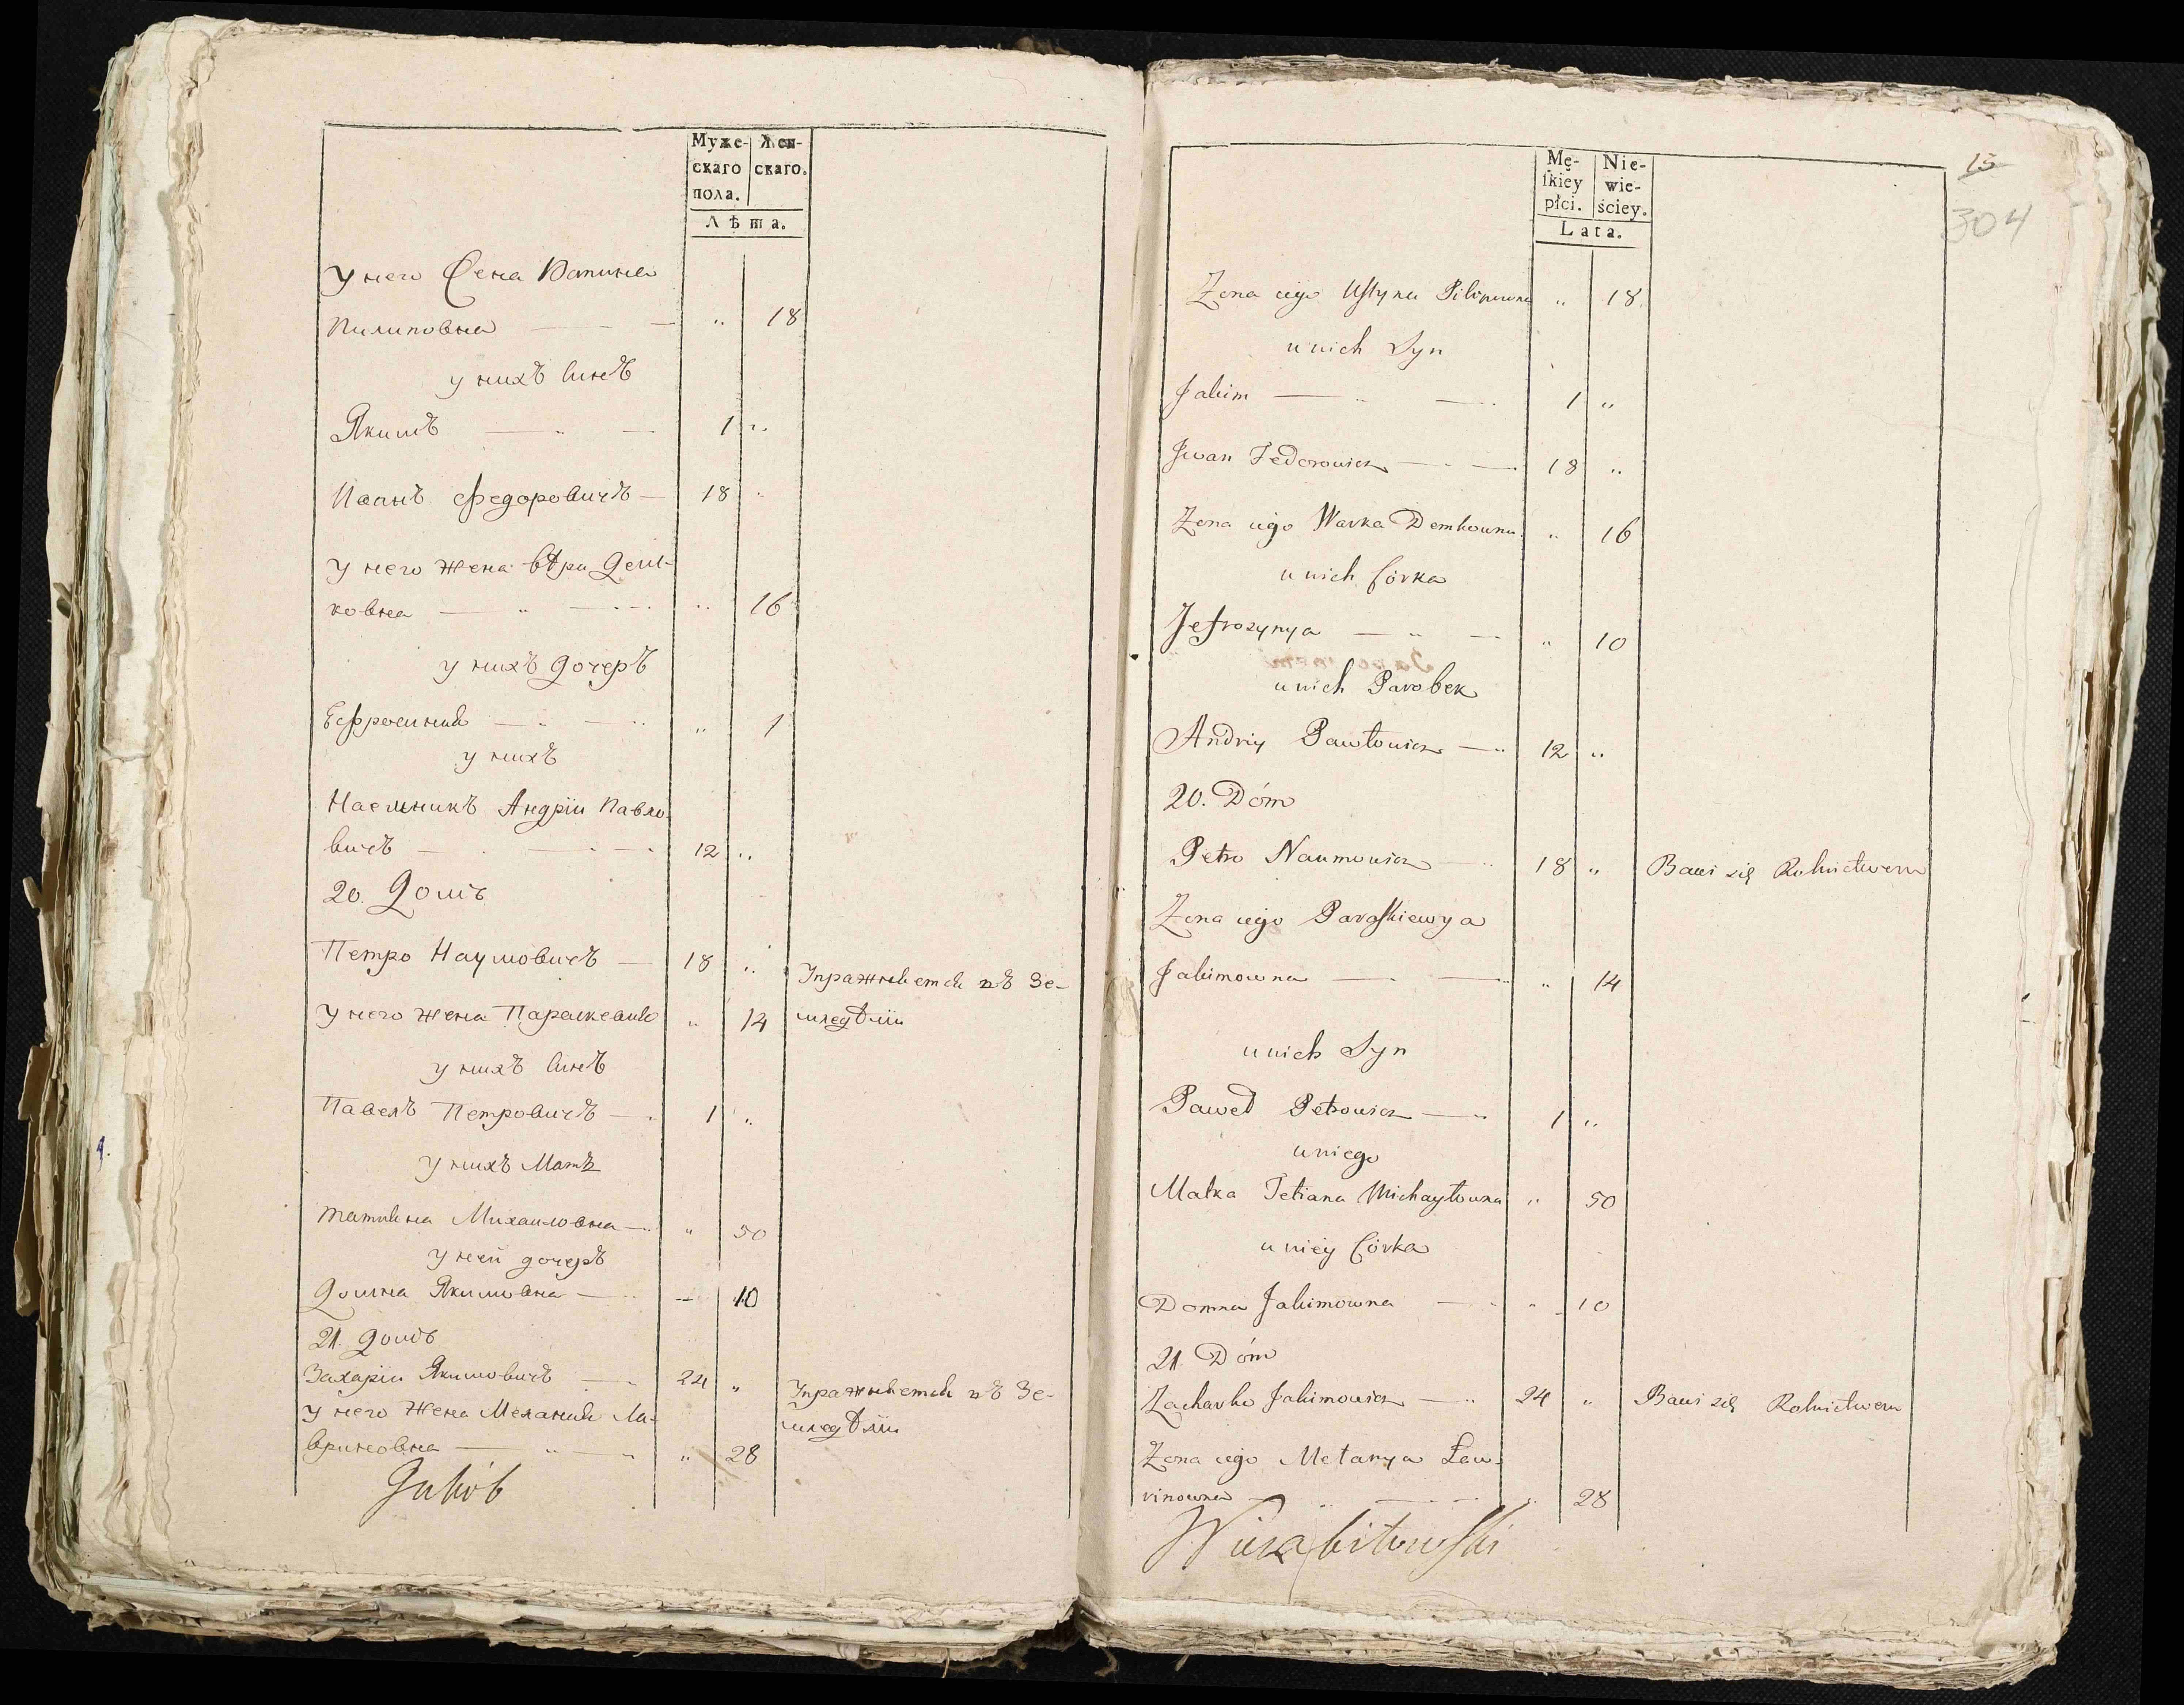 Муже-
скаго
пола.
Жен-
скаго.
Лѣта.
У него Жена
Пилиповна — — — „ 18
у нихъ Синъ
Якимъ — „ — 1 „
Иванъ Федоровичъ — 18 „
У него жена Вѣра Дем-
ковна — „ — „ 16
у нихъ дочеръ
Ефросиния — „ — „ 1
у нихъ
Наемникъ Андрiи Павло-
вичъ — — 12 „
20. Домъ
Петро Наумовичъ — 18 „ Упражняется въ Зе-
У него жена Параскевия „ 14 мледѣлiи
у нихъ Синъ
Павелъ Петровичъ — 1 „
у нихъ Матъ
Татияна Михаиловна — „ 50
У ней дочеръ
Домна Якимовна — — 10
21. домъ
Захарiи Якимовичъ — 24 „ Упражняется въ Зе-
У него Жена Мелания Ла- мледѣлiи
вриновна — „ — „ 28
Jakób
15
304
Mę-
ſkiey
płci.
Nie-
wie-
ściey.
Lata.
Zona iego Uſtyna Pilipowna „ 18
u nich Syn
Jakim — „ — 1 „
Iwan Fedorowicz — — 18 „
Zona iego Warka Demkowna „ 16
u nich Córka
Jefrozynya — „ — „ 10
u nich Parobek
Andriy Pawłowicz — „ 12 „
20. Dóm
Petro Naumowicz — „ 18 „ Bawi się Rolnictwem
Zona iego Paraſkiewya
Jakimowna — — „ 14
u nich Syn
Paweł Petrowicz — „ 1 „
u niego
Matka Tetiana Michayłowna „ 50
u niéy Córka
Domna Jakimowna — „ 10
21. Dóm
Zacharko Jakimowicz — „ 24 „ Bawi się Rolnictwem
Zona iego Mełanya Ław-
rinowna — „ — „ 28